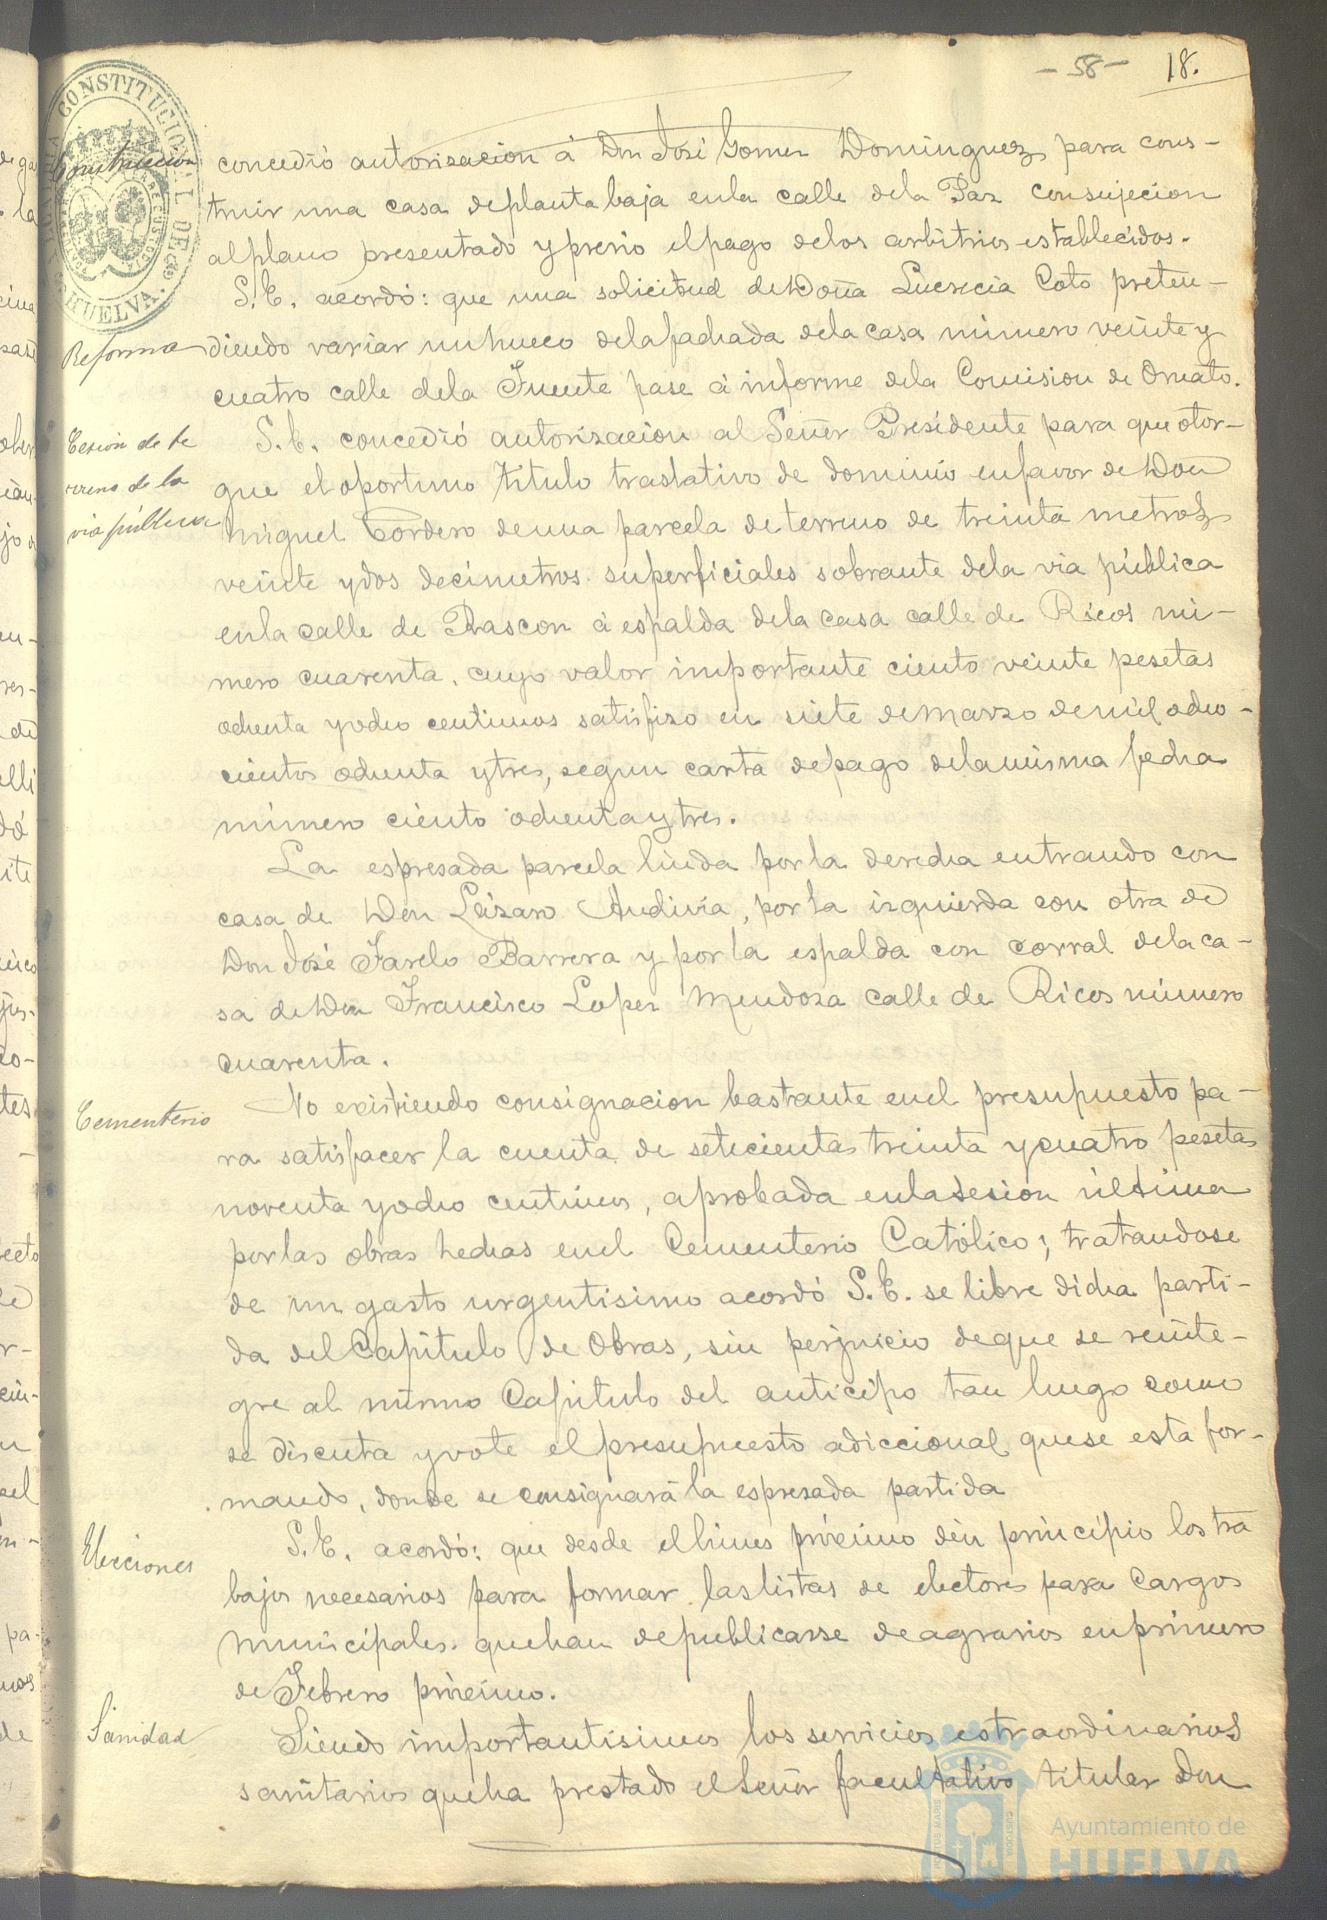 - 58 - 18.
ALCALDIA CONSTITUCIONAL DE HUELVA.
Construccion
concedió autorizacion á Don José Gomez Dominguez para cons-
truir una casa de planta baja en la calle de la Paz con sujecion
al plano presentado y previo el pago de los arbitrios establecidos.
S.E. acordó: que una solicitud de Doña Lucrecia Coto preten-
Reforma
diendo variar un hueco de la fachada de la casa número veinte y
cuatro calle de la Fuente pase á informe de la Comision de Ornato.
Cesion de te
rreno de la
via pública
S.E. concedió autorizacion al Señor Presidente para que otor-
gue el oportuno título traslativo de dominio en favor de Don
Miguel Cordero de una parcela de terreno de treinta metros
veinte y dos decímetros superficiales sobrante de la via pública
en la calle de Rascon á espalda de la casa calle de Ricos nú-
mero cuarenta, cuyo valor importante ciento veinte pesetas
ochenta y ocho centimos satisfizo en siete de Marzo de mil ocho-
cientos ochenta y tres, segun carta de pago de la misma fecha
número ciento ochenta y tres.
La espresada parcela linda por la derecha entrando con
casa de Don Lázaro Andivia, por la izquierda con otra de
Don José Farelo Barrera y por la espalda con corral de la ca-
sa de Don Francisco Lopez Mendoza calle de Ricos número
cuarenta.
Cementerio
No existiendo consignacion bastante en el presupuesto pa-
ra satisfacer la cuenta de setecientas treinta y cuatro pesetas
noventa y ocho centimos, aprobada en la sesion última
por las obras hechas en el Cementerio Católico; tratandose
de un gasto urgentísimo acordó S.E. se libre dicha parti-
da del Capítulo de Obras, sin perjuicio de que se reinte-
gre al mismo Capítulo del anticipo tan luego como
se discuta y vote el presupuesto adiccional que se esta for-
mando, donde se consignará la espresada partida
Elecciones
S.E. acordó: que desde el lunes próximo den principio los tra
bajos necesarios para formar las listas de electores para cargos
municipales que han de publicarse de agrarios en primero
de Febrero próximo.
Sanidad
Siendo importantísimos los servicios estraordinarios
sanitarios que ha prestado el Señor facultativo titular Don
Ayuntamiento de
HUELVA